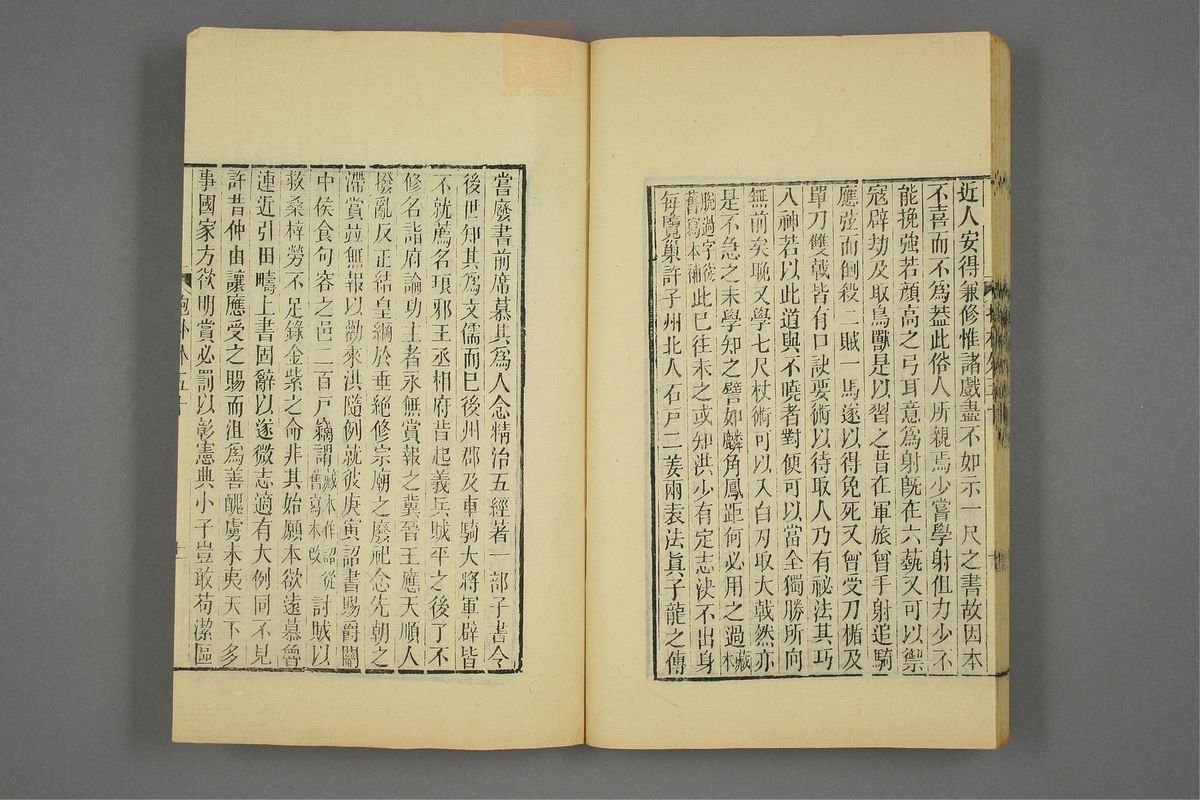 近人安得兼修惟諸戲盡不如示一尺之書故因本
不喜而不爲葢此俗人所親焉少嘗學射但力少不
能挽强若顔高之弓耳意爲射旣在六藝又可以禦
寇辟劫及取鳥獸是以習之昔在軍旅曾手射追騎
應弦而倒殺二賊一馬遂以得免死又曾受刀楯及
單刀雙戟皆有口訣要術以待取人乃有祕法其巧
入神若以此道與不曉者對便可以當全獨勝所向
無前矣晚又學七尺杖術可以入白刃取大戟然亦
是不急之末學知之譬如麟角鳳距何必用之過藏本
脫過字從舊寫本補此已往未之或知洪少有定志決不出身
每覽巢許子州北人石戸二姜兩袁法眞子龍之傳
嘗廢書前席慕其爲人念精治五經著一部子書令
後世知其爲文儒而已後州郡及車騎大將軍辟皆
不就薦名琅邪王丞相府昔起義兵賊平之後了不
修名詣府論功主者永無賞報之冀晉王應天順人
撥亂反正結皇綱於垂絕修宗廟之廢祀念先朝之
滯賞並無報以勸來洪隨例就彼庚寅詔書賜爵關
中侯食句容之邑二百戸竊謂藏本作詔從舊寫本改討賊以
救桑梓勞不足錄金紫之命非其始願本欲遠慕魯
連近引田疇上書固辭以遂微志適有大例同不見
許昔仲由讓應受之賜而沮爲善醜虜未夷天下多
事國家方欲明賞必罰以彰憲典小子豈敢苟潔區